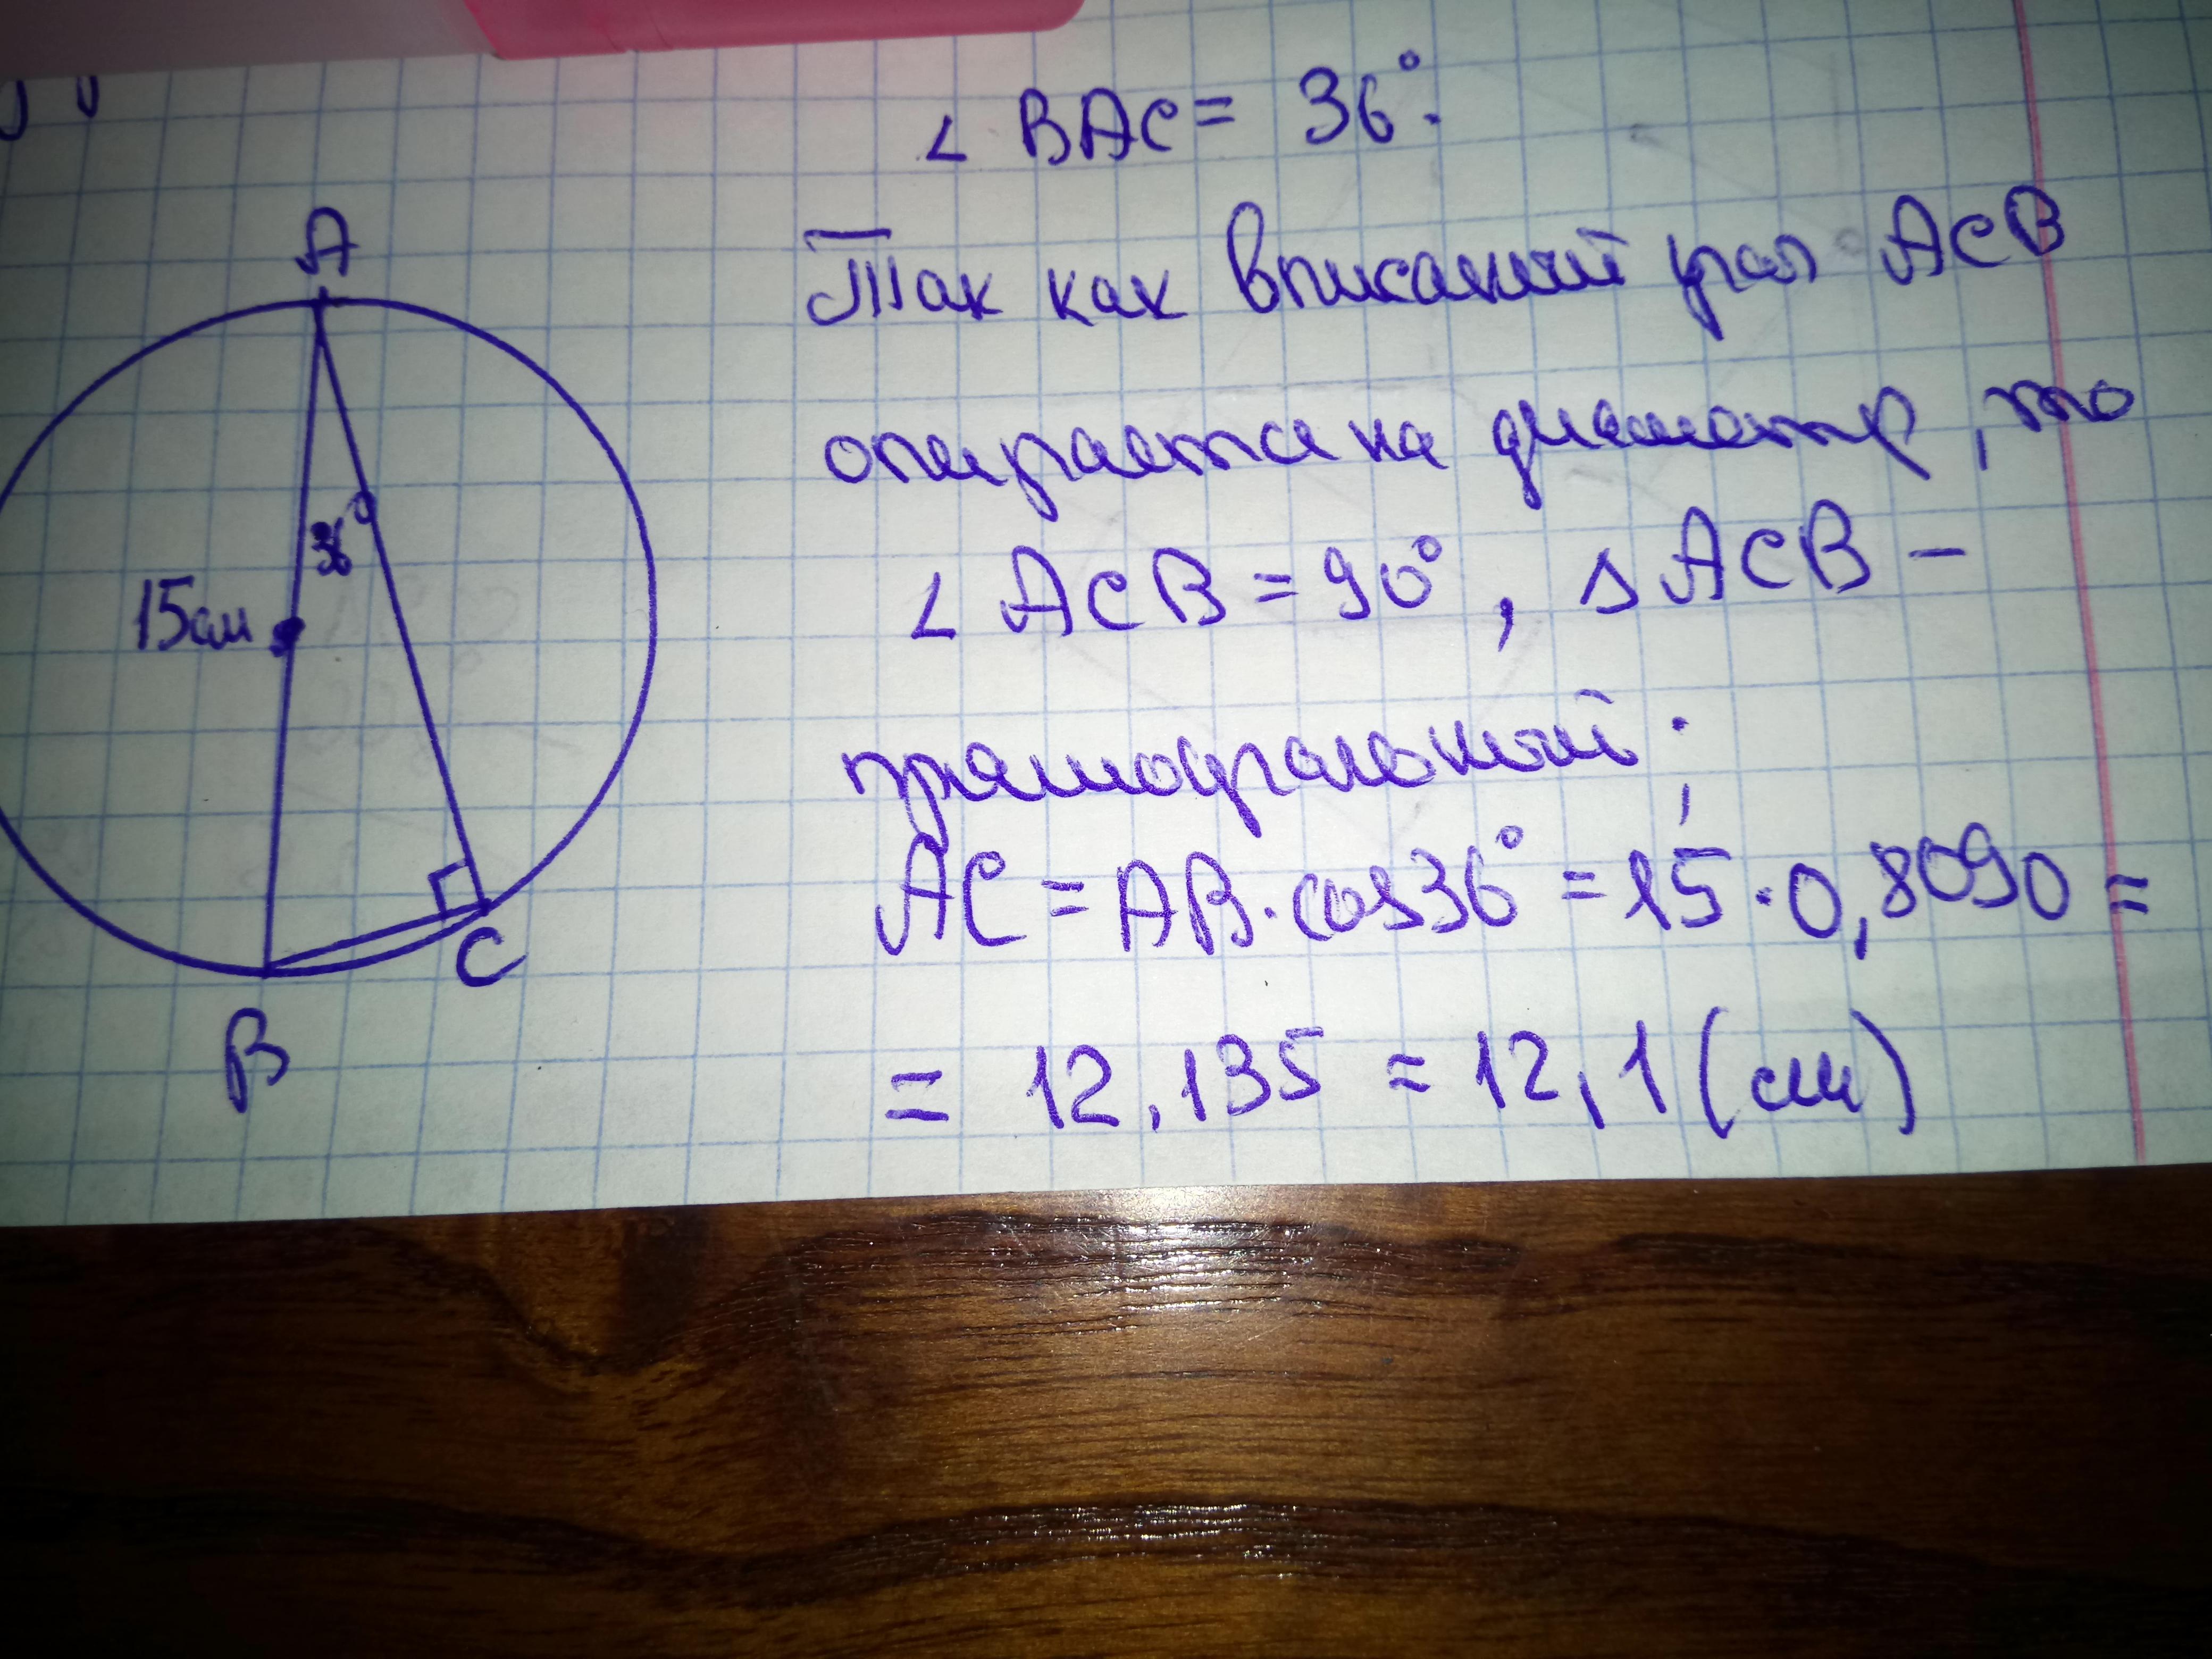 ∠ BAC = 36°.
A
Так как вписаный угол ACB
опирается на диаметр, то
36°
∠ ACB = 90°, △ ACB –
15см
прямоугольный;
AC = AB · cos36° = 15 · 0,8090 =
C
B
= 12,135 ≈ 12,1 (см)